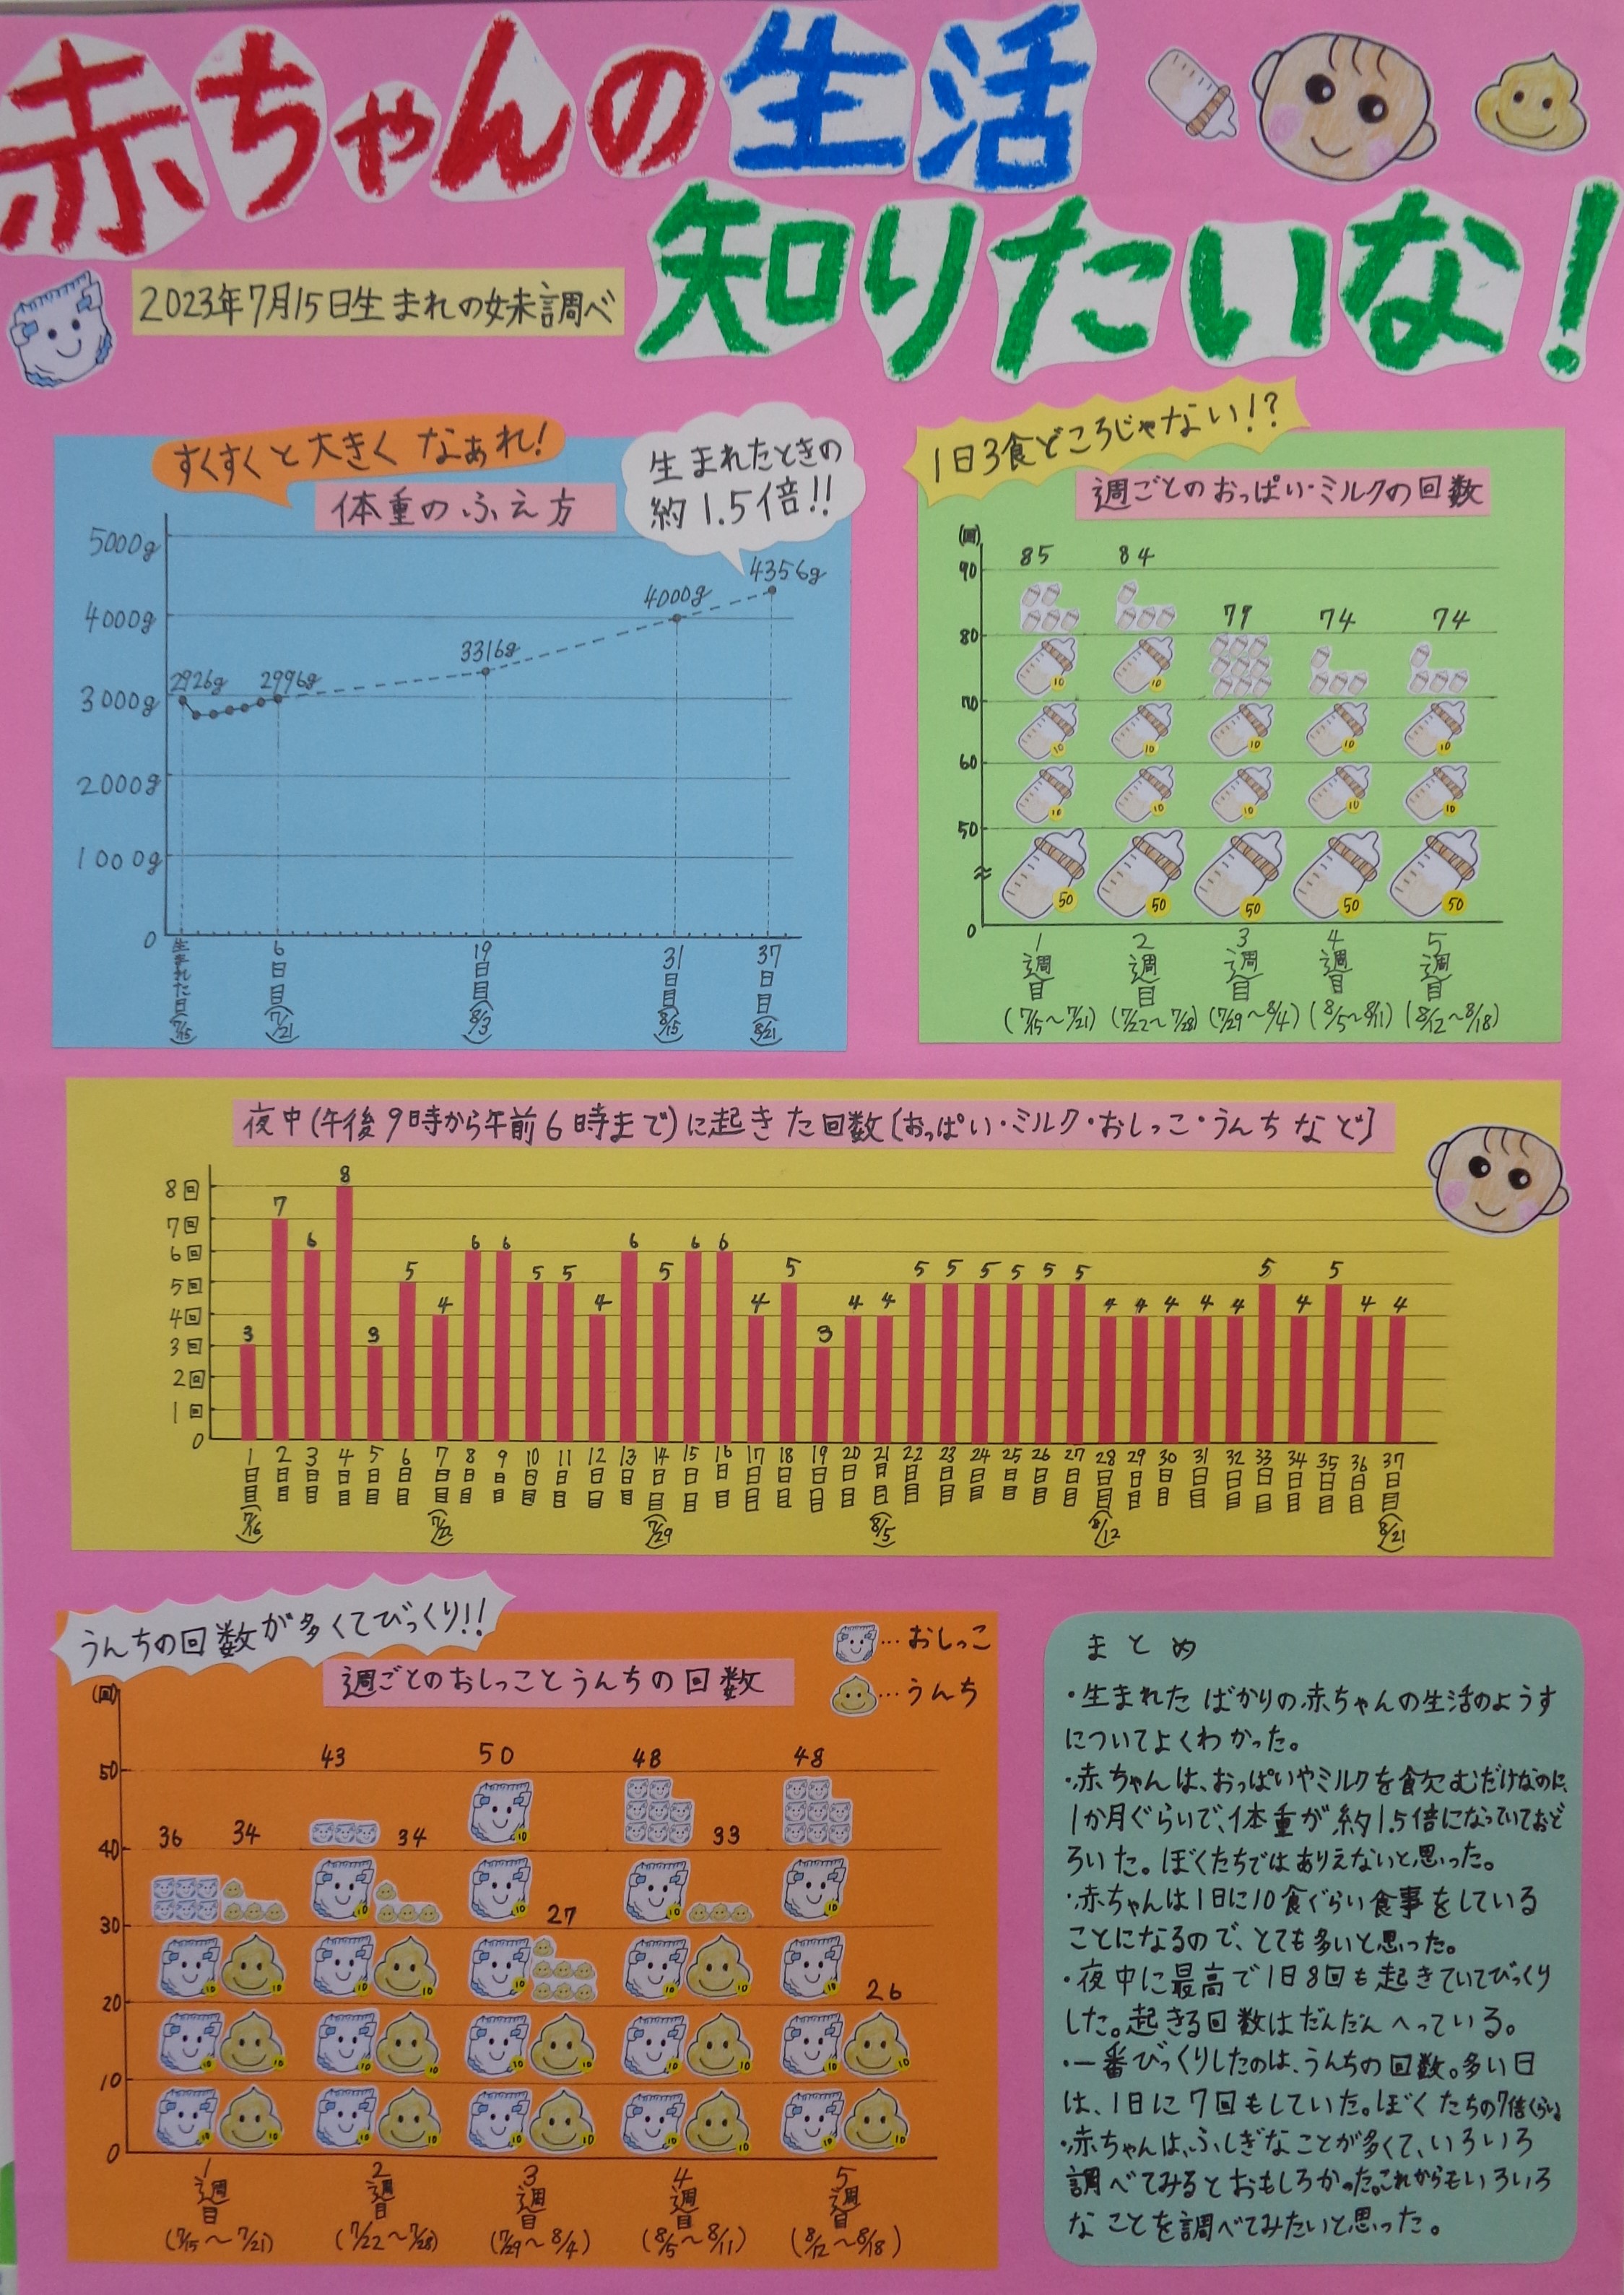 赤ちゃんの生活
知りたいな!
2023年7月15日生まれの妹調べ
すくすくと大きくなぁれ!
体重のふえ方
生まれたときの
約1.5倍!!
5000g
4000g
3000g
2000g
1000g
0
2926g
2996g
3316g
4000g
4356g
生まれた日(7/15)
6日目(7/21)
19日目(8/3)
31日目(8/15)
37日目(8/21)
1日3食どころじゃない!?
週ごとのおっぱい・ミルクの回数
(回)
90
80
70
60
50
0
85
84
79
74
74
10 10
10 10 10 10 10
10 10 10 10 10
50 50 50 50 50
1週目 2週目 3週目 4週目 5週目
(7/15〜7/21) (7/22〜7/28) (7/29〜8/4) (8/5〜8/11) (8/12〜8/18)
夜中(午後9時から午前6時まで)に起きた回数[おっぱい・ミルク・おしっこ・うんちなど]
8回
7回
6回
5回
4回
3回
2回
1回
0
3 7 6 8 3 5 4 6 6 5 5 4 6 5 6 6 4 5 3 4 4 5 5 5 5 5 5 4 4 4 4 4 5 4 5 4 4
1日目 2日目 3日目 4日目 5日目 6日目 7日目 8日目 9日目 10日目 11日目 12日目 13日目 14日目 15日目 16日目 17日目 18日目 19日目 20日目 21日目 22日目 23日目 24日目 25日目 26日目 27日目 28日目 29日目 30日目 31日目 32日目 33日目 34日目 35日目 36日目 37日目
(7/16) (7/22) (7/29) (8/5) (8/12) (8/21)
うんちの回数が多くてびっくり!!
週ごとのおしっことうんちの回数
…おしっこ
…うんち
(回)
50
40
30
20
10
0
36 34
43 34
50 27
48 33
48 26
10
10 10 10 10
10 10 10 10 10 10 10 10
10 10 10 10 10 10 10 10 10 10
10 10 10 10 10 10 10 10 10 10
1週目 2週目 3週目 4週目 5週目
(7/15〜7/21) (7/22〜7/28) (7/29〜8/4) (8/5〜8/11) (8/12〜8/18)
まとめ
・生まれたばかりの赤ちゃんの生活のようす
についてよくわかった。
・赤ちゃんは、おっぱいやミルクを飲むだけなのに、
1か月ぐらいで、体重が約1.5倍になっていておど
ろいた。ぼくたちではありえないと思った。
・赤ちゃんは1日に10食ぐらい食事をしている
ことになるので、とても多いと思った。
・夜中に最高で1日8回も起きていてびっくり
した。起きる回数はだんだんへっている。
・一番びっくりしたのは、うんちの回数。多い日
は、1日に7回もしていた。ぼくたちの7倍くらい。
・赤ちゃんは、ふしぎなことが多くて、いろいろ
調べてみるとおもしろかった。これからもいろいろ
なことを調べてみたいと思った。